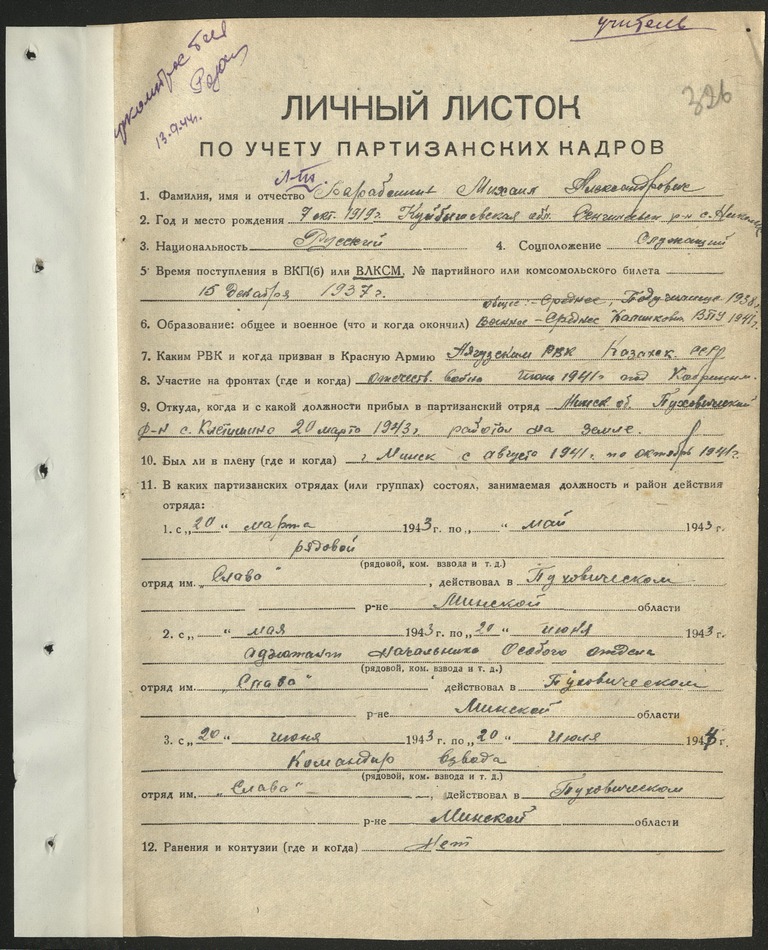 учитель
13.9.44г.
326
ЛИЧНЫЙ ЛИСТОК
ПО УЧЕТУ ПАРТИЗАНСКИХ КАДРОВ
1. Фамилия, имя и отчество Барабошин Михаил Александрович
2. Год и место рождения 7 окт. 1919г. Куйбышевская обл. р-н с.
3. Национальность Русский 4. Соцположение Служащий
5. Время поступления в ВКП(б) или ВЛКСМ, № партийного или комсомольского билета
15 декабря 1937г.
общее: - Среднее, Педучилище 1938г.
6. Образование: общее и военное (что и когда окончил) Военное - Среднее ВПУ 1941г.
7. Каким РВК и когда призван в Красную Армию РВК Казахск. ССР
8. Участие на фронтах (где и когда) отечеств. война Июнь 1941г под Кобрином.
9. Откуда, когда и с какой должности прибыл в партизанский отряд Минск. об. Пуховический
р-н с. 20 марта 1943г. работал на земле.
10. Был ли в плену (где и когда) г. Минск с августа 1941г. по октябрь 1941г.
11. В каких партизанских отрядах (или группах) состоял, занимаемая должность и район действия
отряда:
1. с „20“ марта 1943 г. по „ “ май 1943 г.
рядовой
(рядовой, ком. взвода и т. д.)
отряд им. „Слава“, действовал в Пуховическом
р-не Минской области
2. с „ “ мая 1943 г. по „20“ июня 1943 г.
адъютант начальника Особого отдела
(рядовой, ком. взвода и т. д.)
отряд им. „Слава“ действовал в Пуховическом
р-не Минской области
3. с „20“ июня 1943 г. по „20“ июля 1944 г.
Командир взвода
(рядовой, ком. взвода и т. д.)
отряд им. „Слава“, действовал в Пуховическом
р-не Минской области
12. Ранения и контузии (где и когда) Нет